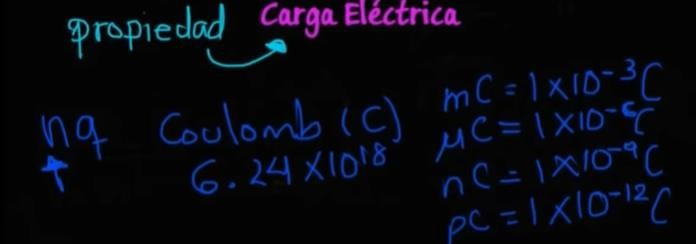 propiedad Carga Eléctrica
nq Coulomb (C)
6.24 X10¹⁸
mC = 1X10⁻³C
μC = 1X10⁻⁶C
nC = 1X10⁻⁹C
pC = 1X10⁻¹²C